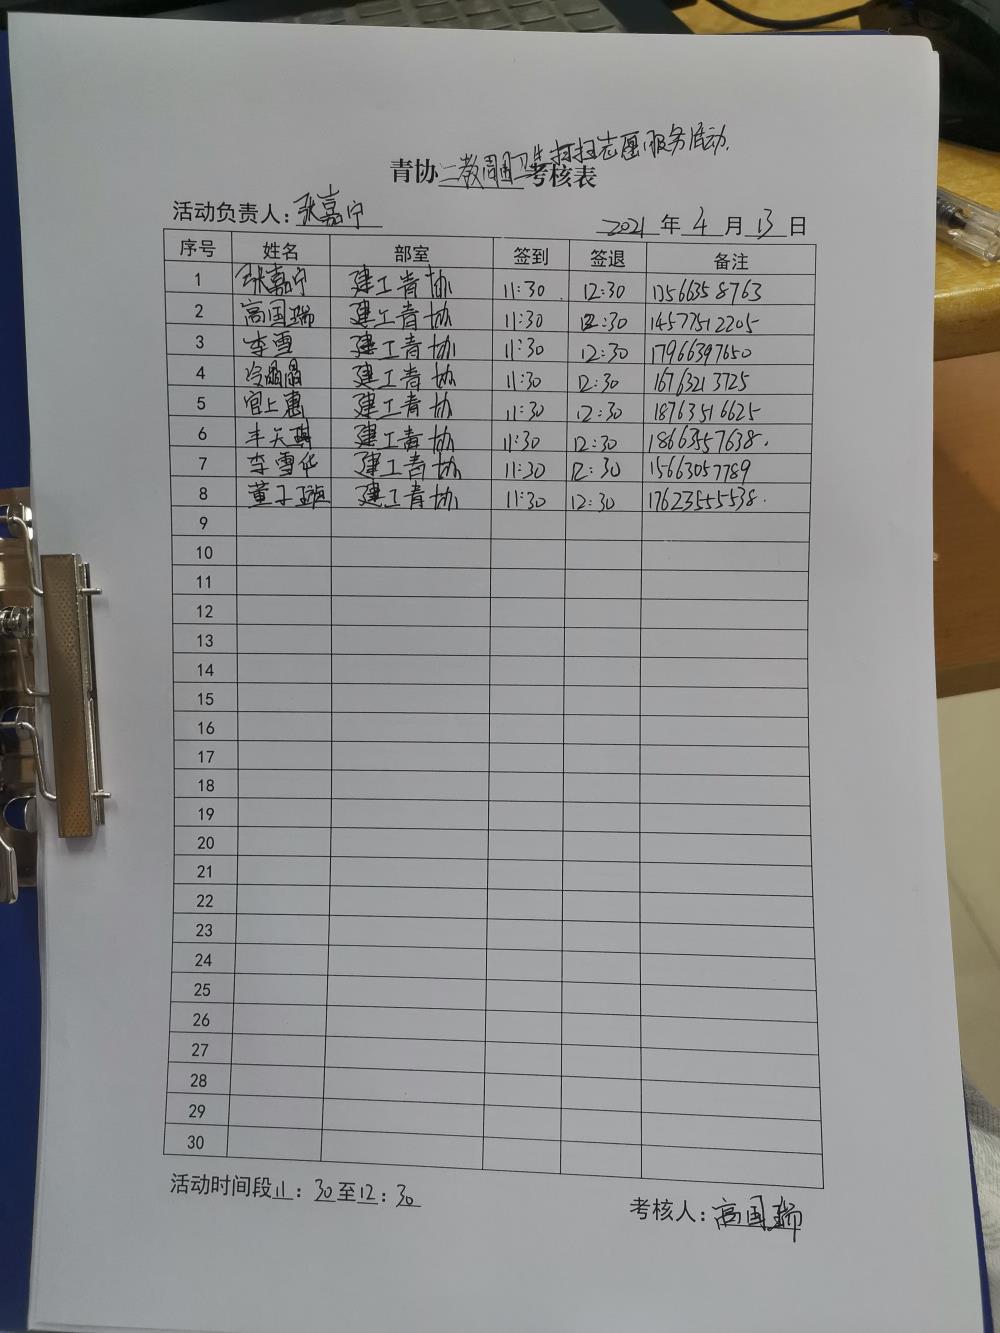 青协二教周围卫生打扫志愿服务活动考核表
活动负责人：张嘉宁 2021年4月13日
序号 姓名 部室 签到 签退 备注
1 张嘉宁 建工青协 11:30 12:30 15663558763
2 高国瑞 建工青协 11:30 12:30 14577512205
3 李雪 建工青协 11:30 12:30 17966397650
4 冷晶晶 建工青协 11:30 12:30 16763213725
5 官上惠 建工青协 11:30 12:30 18763516625
6 丰天琪 建工青协 11:30 12:30 18663557638.
7 李雪华 建工青协 11:30 12:30 15663057789
8 董子璇 建工青协 11:30 12:30 17623555538.
9
10
11
12
13
14
15
16
17
18
19
20
21
22
23
24
25
26
27
28
29
30
活动时间段11：30至12：30
考核人：高国瑞